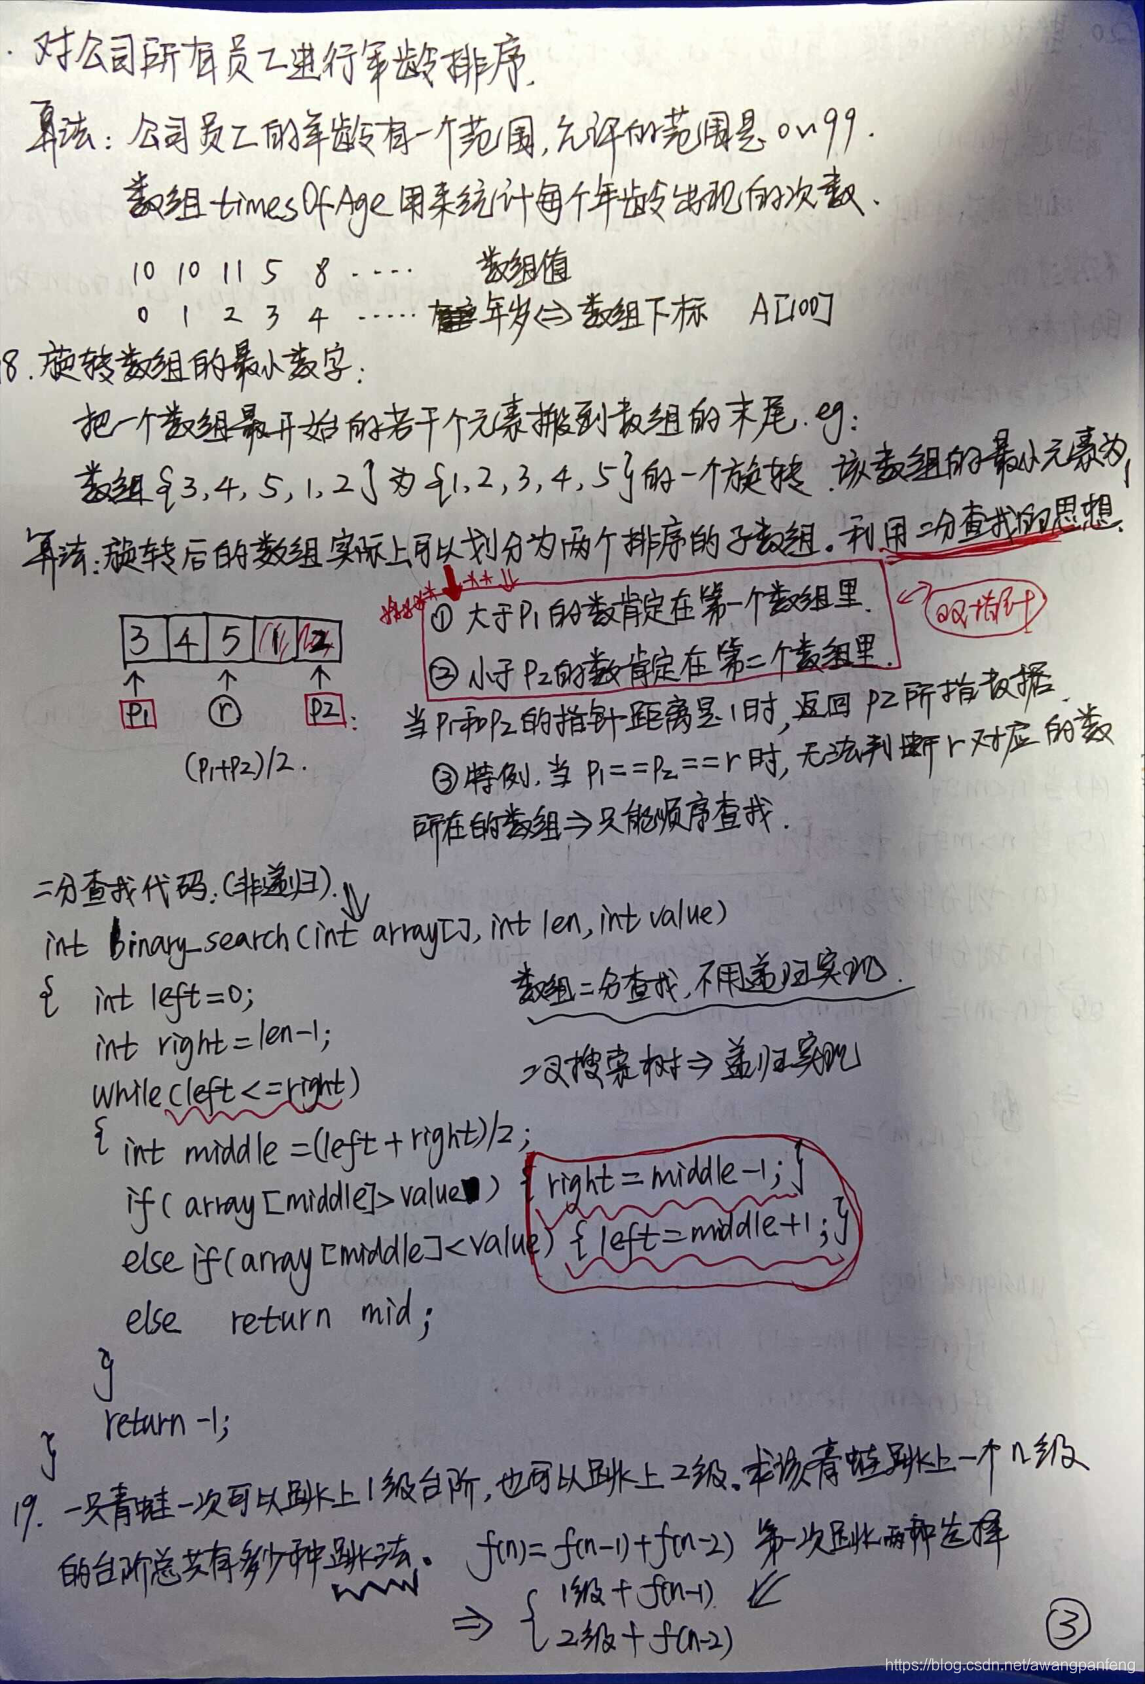 · 对公司所有员工进行年龄排序.
算法：公司员工的年龄有一个范围,允许的范围是 0~99.
数组 timesOfAge 用来统计每个年龄出现的次数.
10 10 11 5 8 ---- 数组值
0 1 2 3 4 ----- 年岁<=>数组下标 A[100]
18. 旋转数组的最小数字：
把一个数组最开始的若干个元素搬到数组的末尾. eg:
数组{3,4,5,1,2}为{1,2,3,4,5}的一个旋转.该数组的最小元素为1
算法:旋转后的数组实际上可以划分为两个排序的子数组。利用二分查找的思想.
① 大于P1的数肯定在第一个数组里. 双指针
3 4 5 1 2
② 小于P2的数肯定在第二个数组里.
P1 r P2 :
当P1和P2的指针距离是1时,返回P2所指数据.
(P1+P2)/2.
③特例.当P1==P2==r时,无法判断r对应的数
所在的数组⇒只能顺序查找.
二分查找代码:(非递归).
int binary_search(int array[], int len, int value)
{ int left=0;
数组二分查找,不用递归实现.
int right=len-1;
二叉搜索树⇒递归实现
while(left<=right)
{ int middle=(left+right)/2;
if(array[middle]>value) { right=middle-1;}
else if(array[middle]<value) { left=middle+1;}
else return mid;
}
return -1;
}
19. 一只青蛙一次可以跳上1级台阶,也可以跳上2级。求该青蛙跳上一个n级
的台阶总共有多少种跳法。 f(n)=f(n-1)+f(n-2) 第一次跳两种选择
⇒ { 1级+f(n-1).
2级+f(n-2)
③
https://blog.csdn.net/awangpanfeng